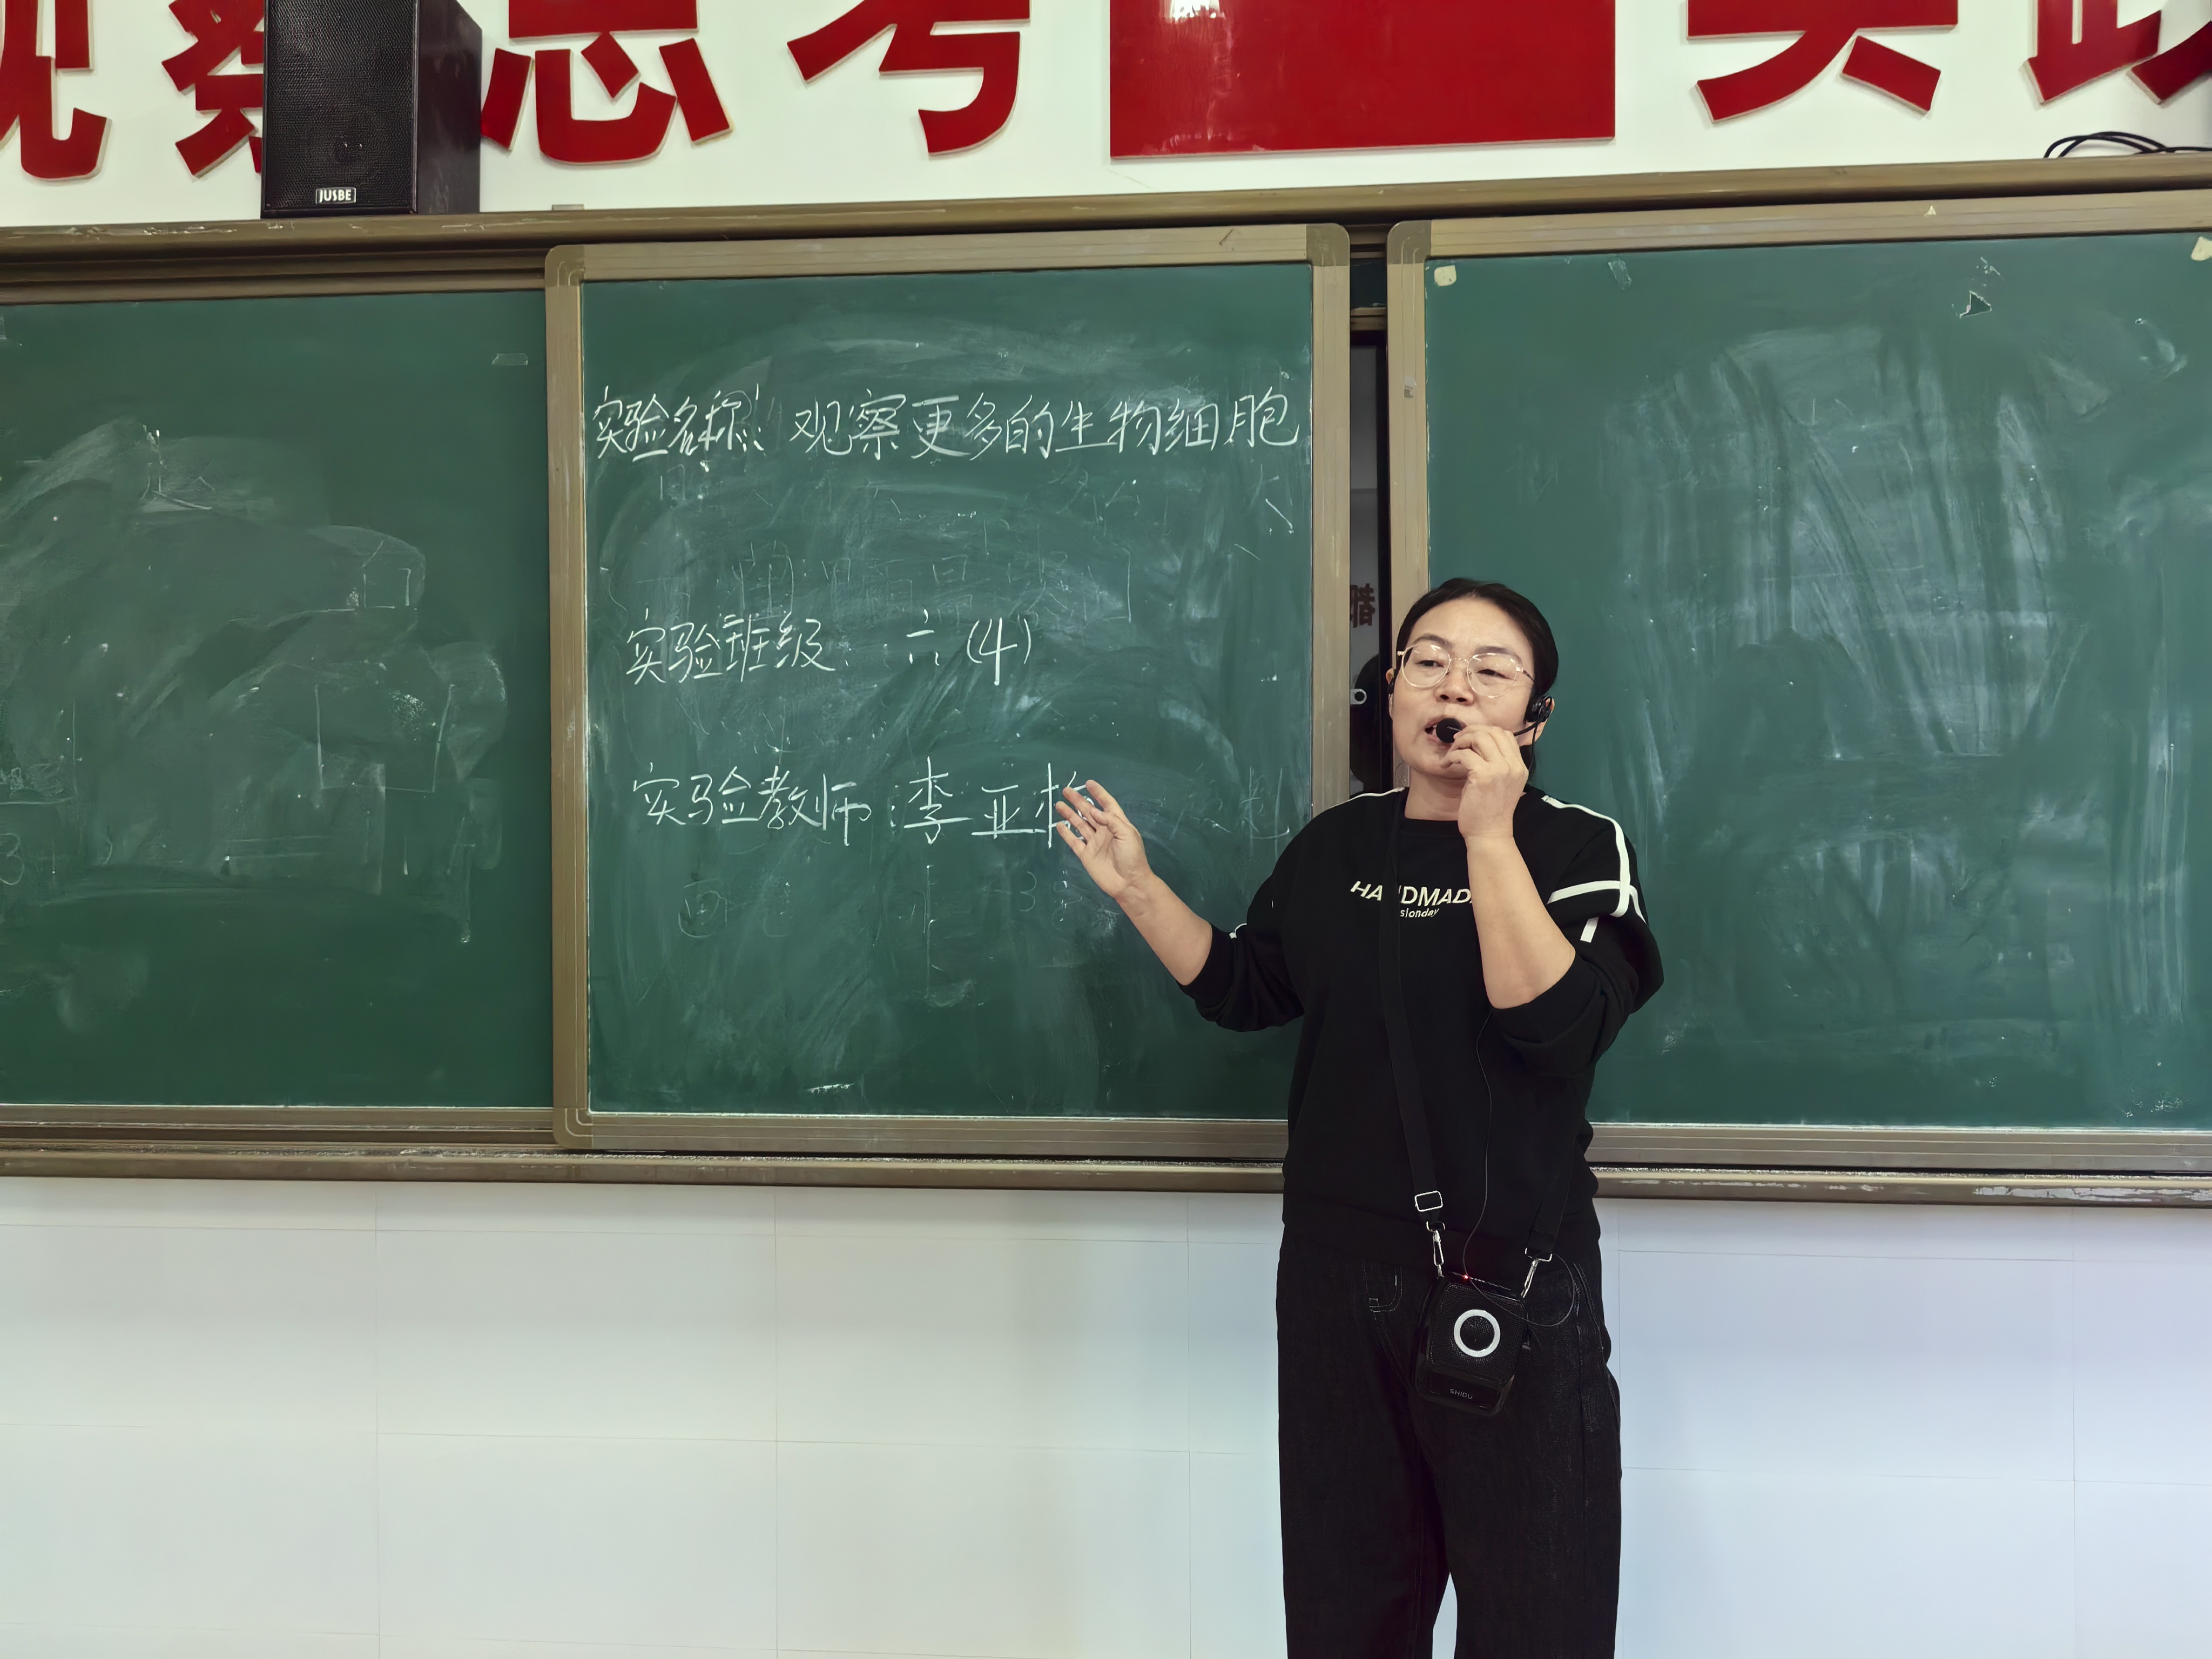 观察 思考 实践
JUSBE
实验名称: 观察更多的生物细胞
实验班级: 六(4)
实验教师:李亚
HANDMADE
sionday
SHIDU